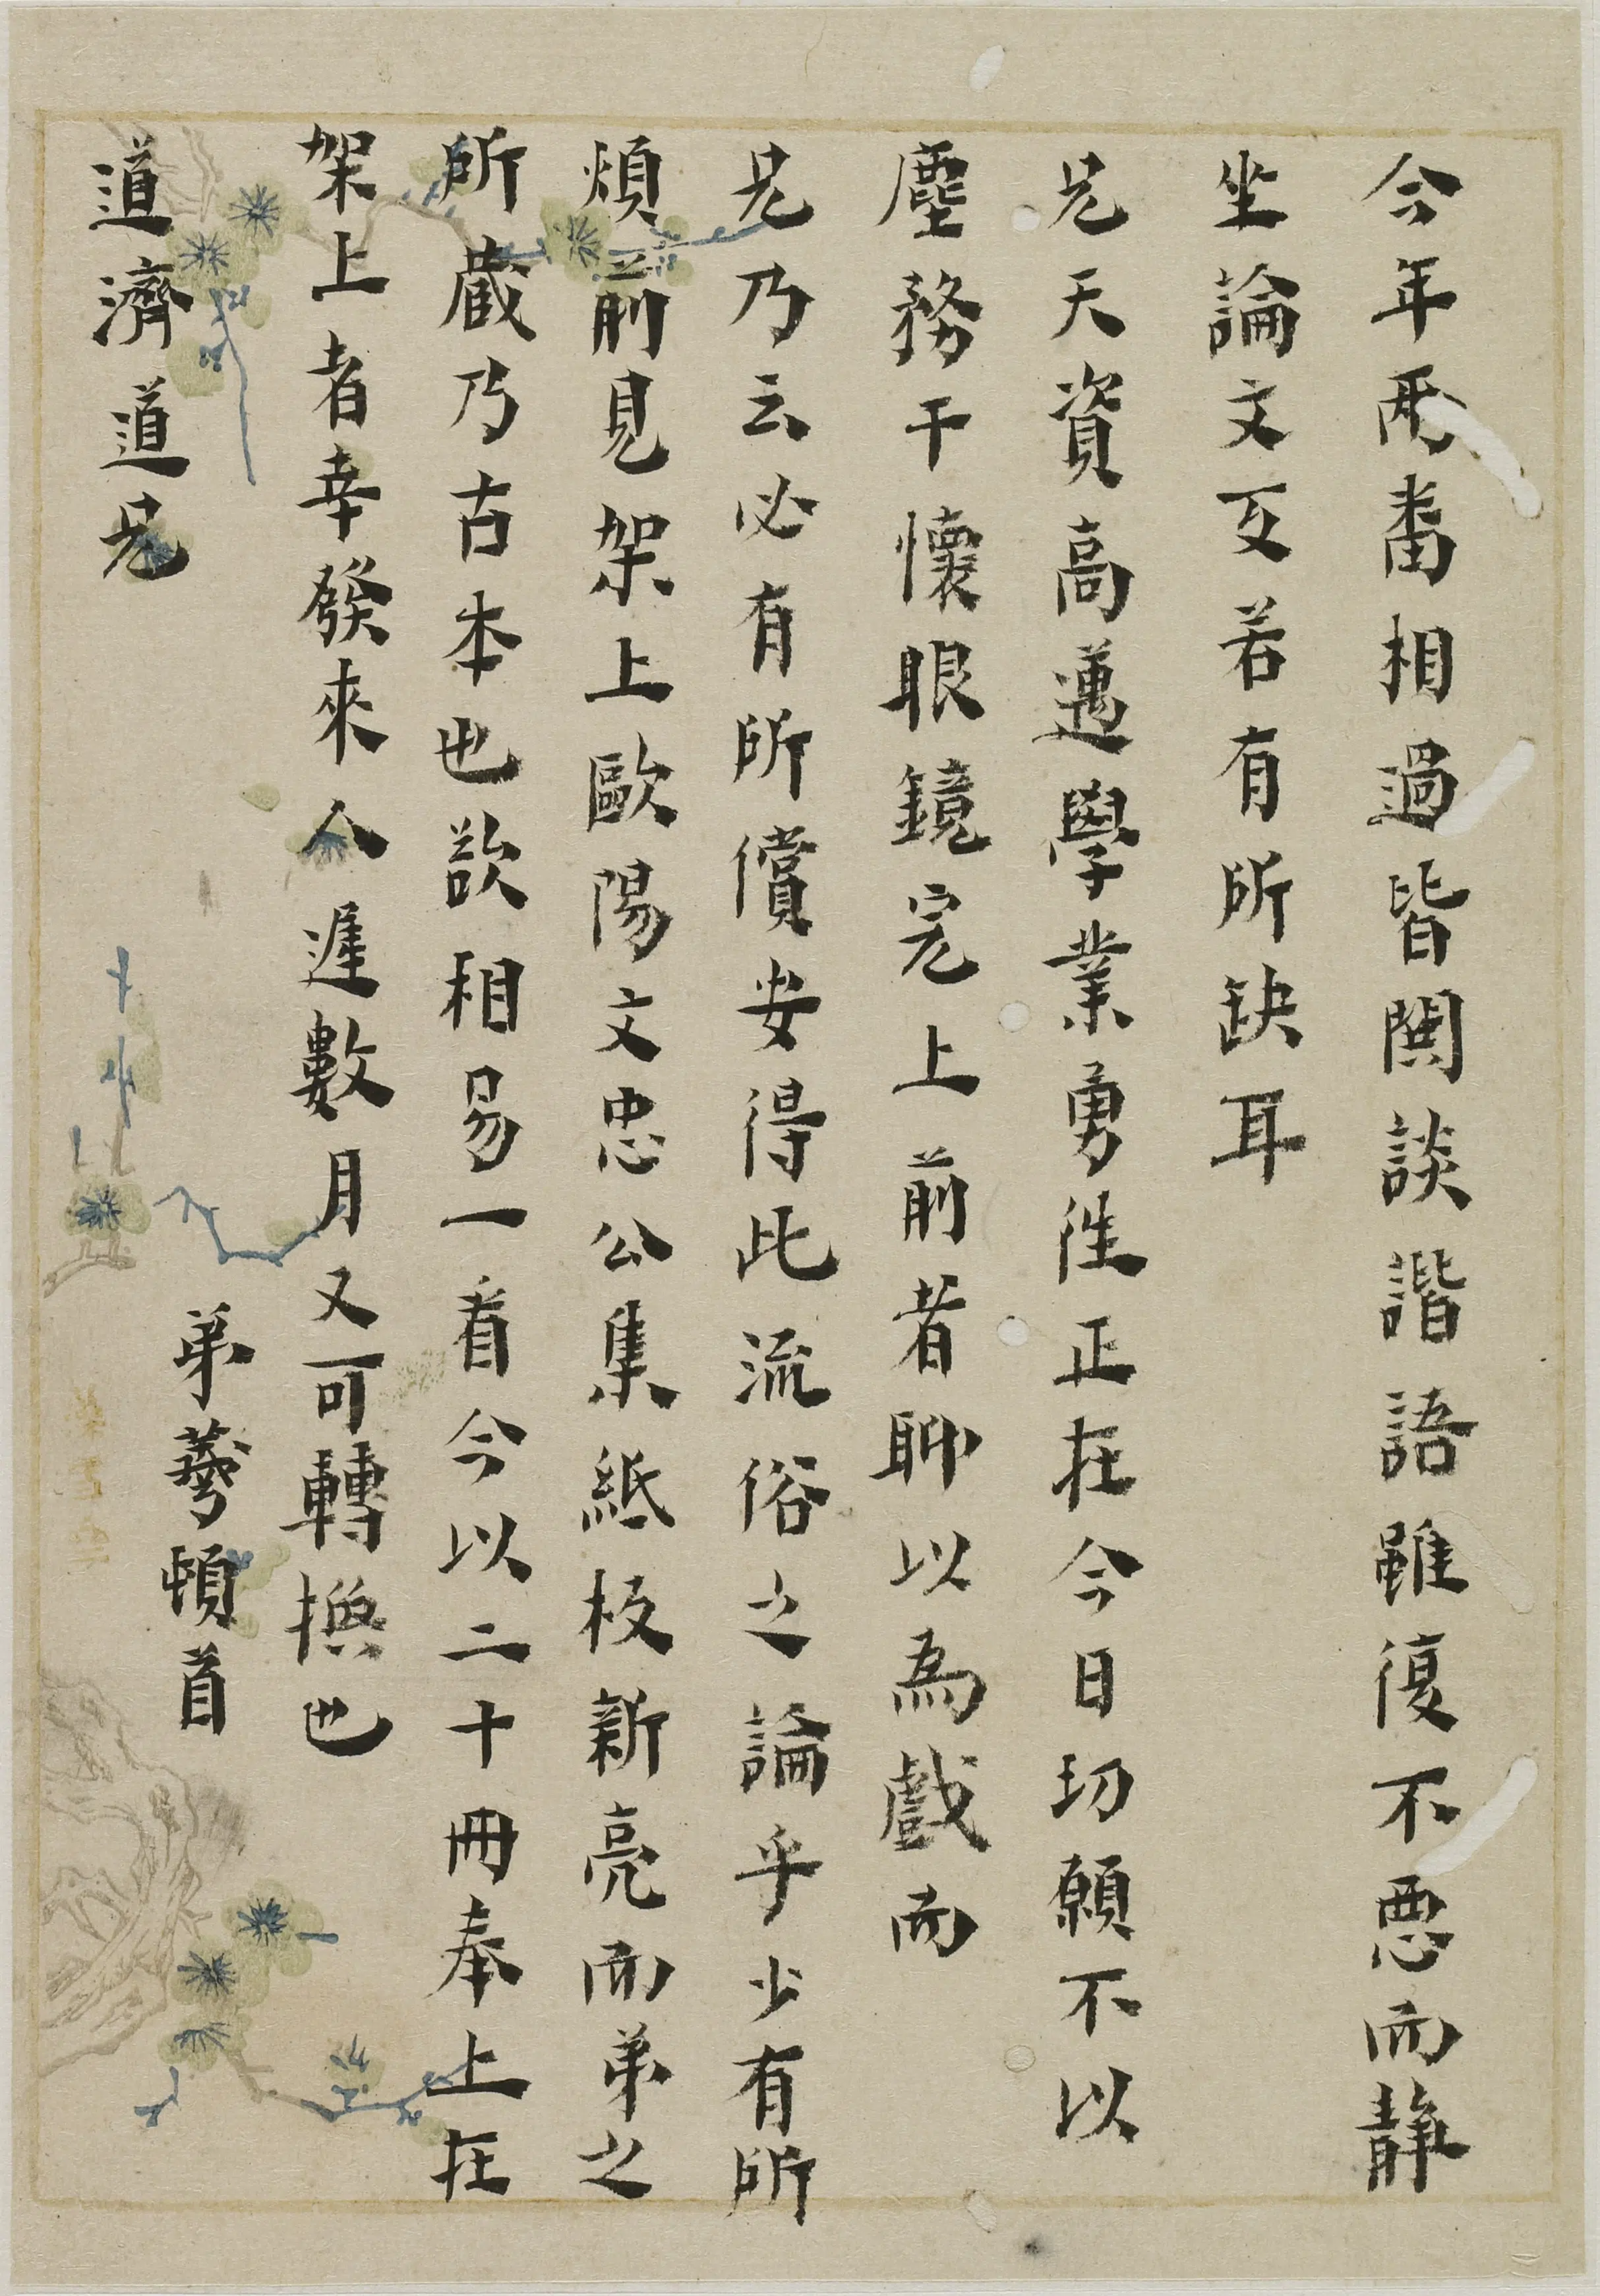 今年兩番相過皆闊談諧語雖復不惡而靜
坐論文互若有所缺耳
兄天資高邁學業勇往正在今日切願不以
塵務干懷眼鏡完上前者聊以為戲而
兄乃云必有所償安得此流俗之論乎少有所
煩前見架上歐陽文忠公集紙板新亮而弟之
所藏乃古本也欲相易一看今以二十冊奉上在
架上者幸發來人遲數月又可轉換也
弟蕚頓首
道濟道兄